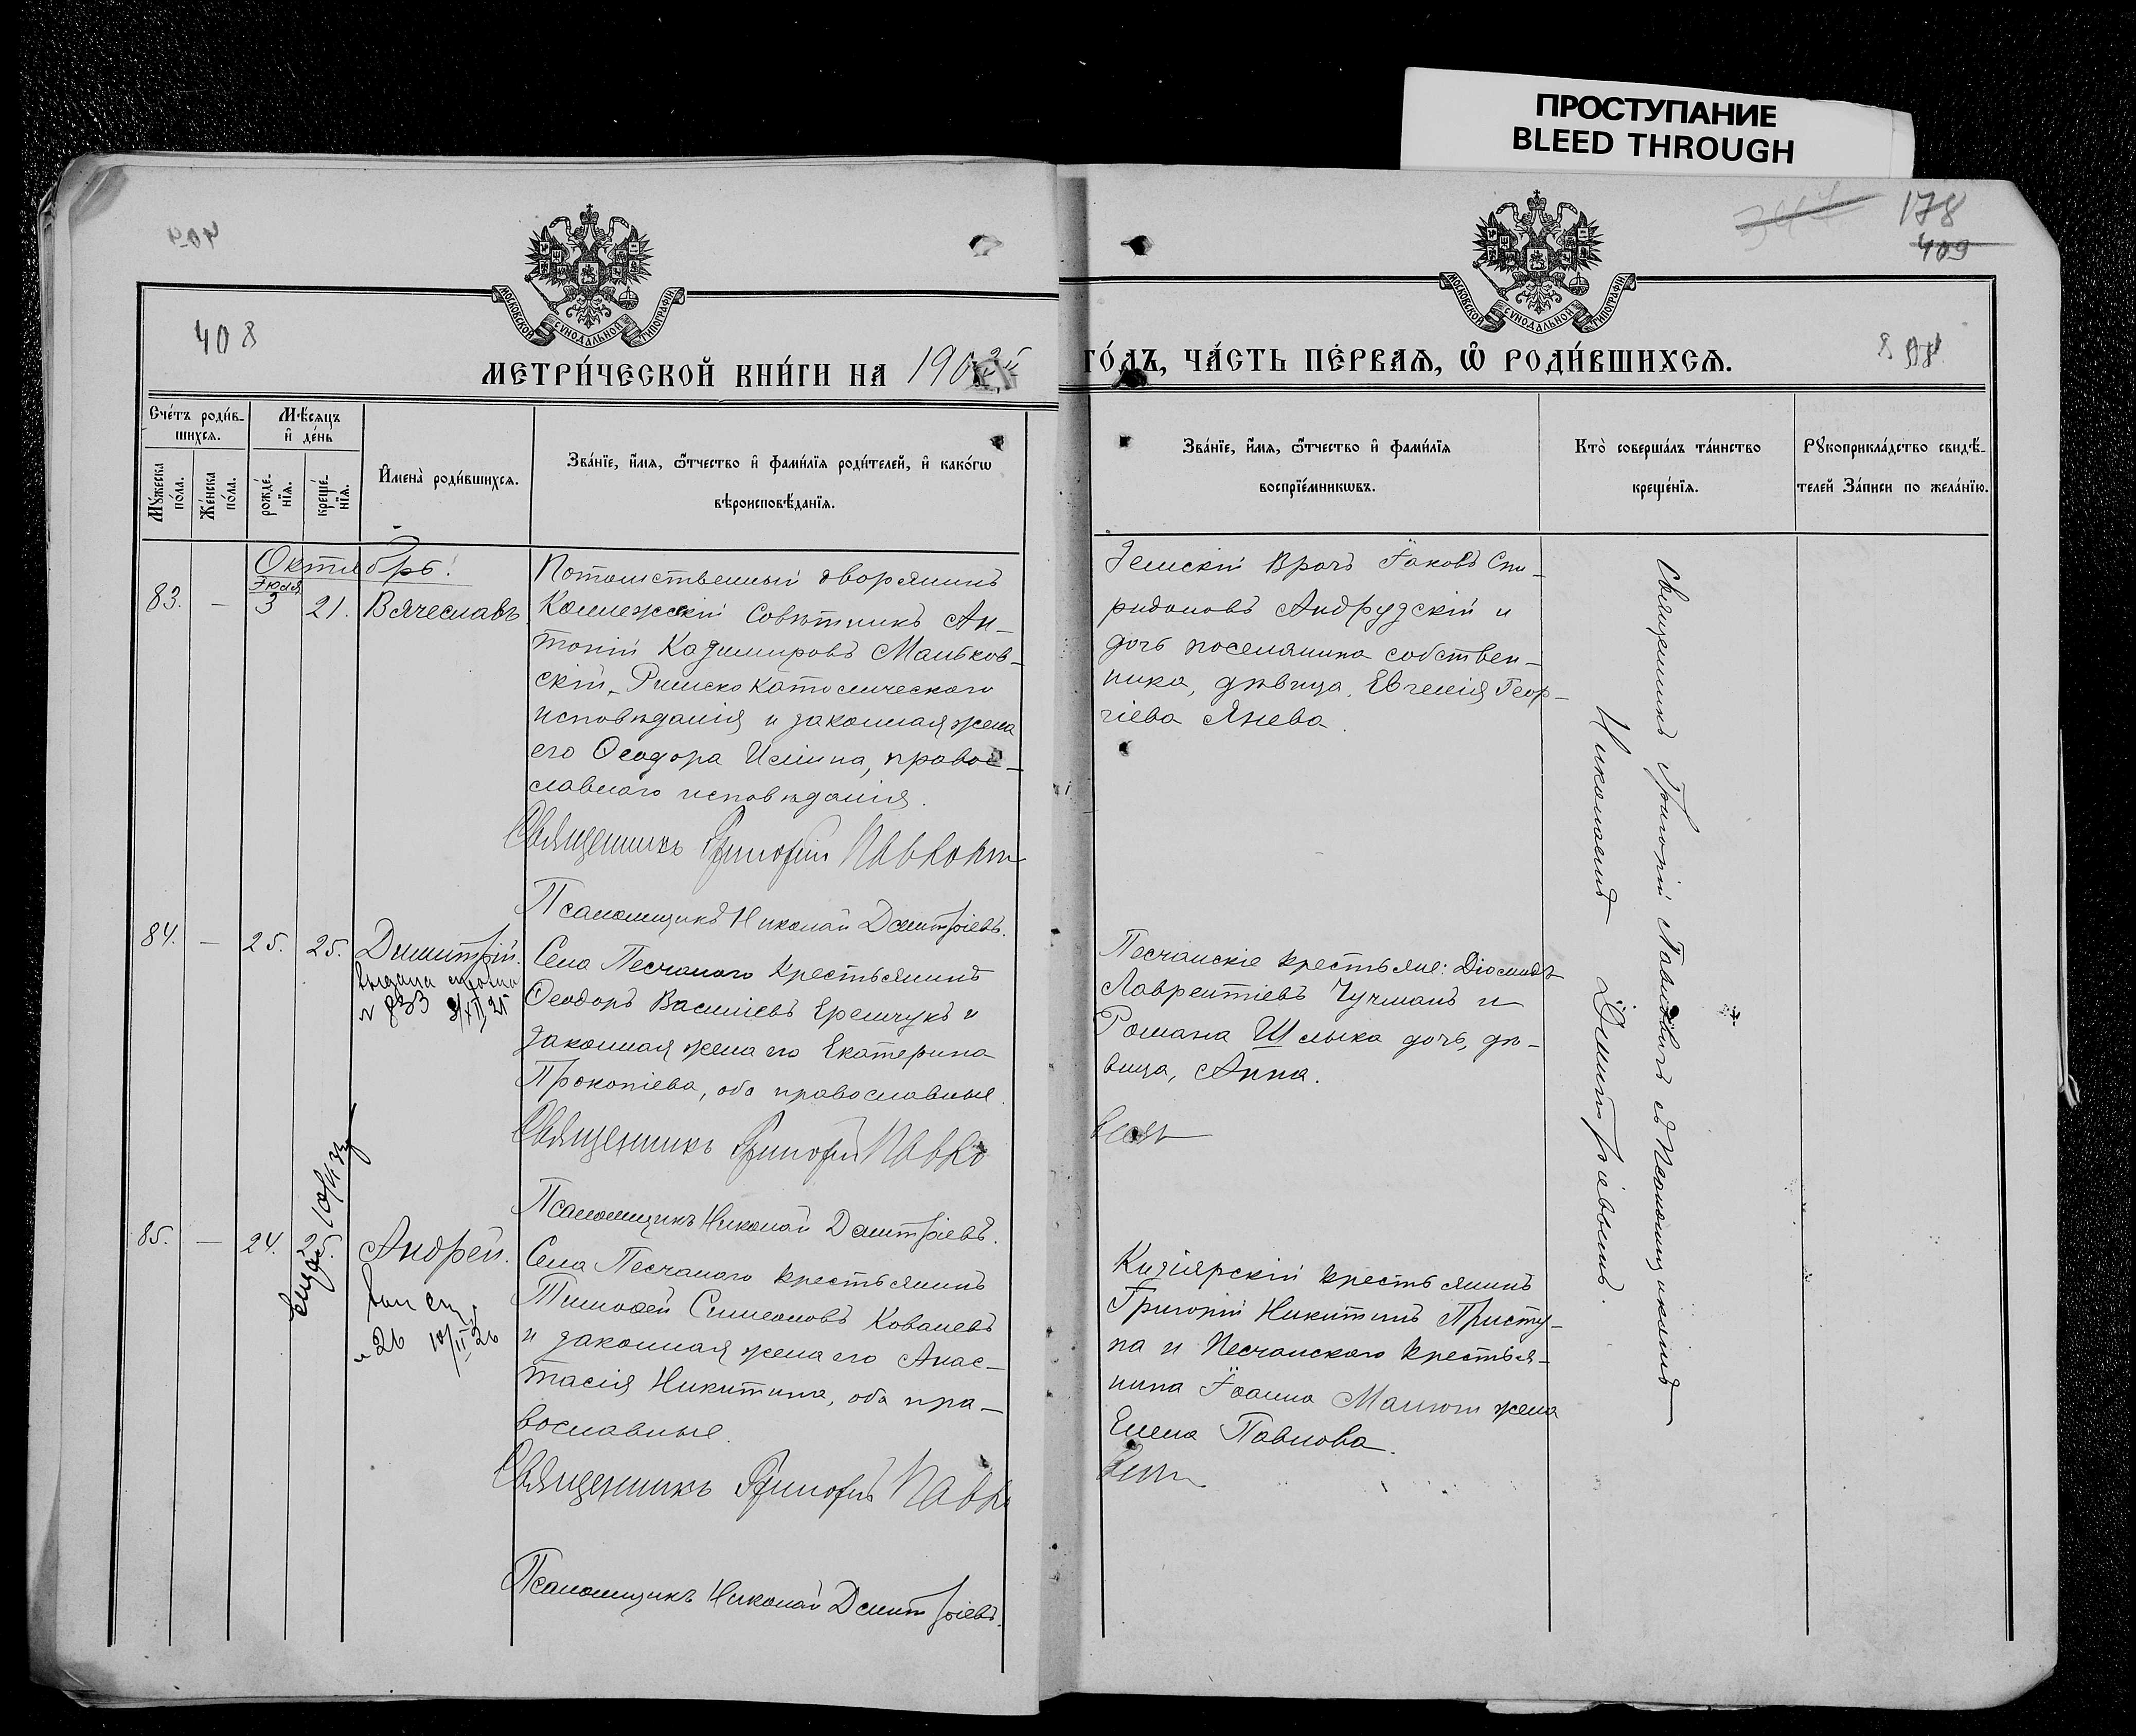 ПРОСТУПАНИЕ
BLEED THROUGH
178
409
408
МОСКОВСКОЙ СѴНОДАЛЬНОЙ ТИПОГРАФІИ
МОСКОВСКОЙ СѴНОДАЛЬНОЙ ТИПОГРАФІИ
МЕТРИ́ЧЕСКОЙ КНИ́ГИ НА 190
ГО́ДЪ, ЧА́СТЬ ПЕ́РВАѦ, Ѡ҆ РОДИ́ВШИХСѦ.
Сче́тъ роди́в-
шихсѧ.
Мꙋ́жеска по́ла.
Же́нска по́ла.
Мѣ́сѧцъ
и҆ де́нь
рожде́-
нїѧ.
креще́-
нїѧ.
И҆мена̀ роди́вшихсѧ.
Зва́нїе, и҆́мѧ, ѻ҆́тчество и҆ фами́лїѧ роди́телей, и҆ како́гѡ
вѣроисповѣ́данїѧ.
Зва́нїе, и҆́мѧ, ѻ҆́тчество и҆ фами́лїѧ
воспрїе́мникѡвъ.
Кто̀ соверша́лъ та́инство
креще́нїѧ.
Рꙋкоприкла́дство свидѣ́-
телей За́писи по жела́нїю.
Октябрь.
Іюля
83. — 3 21. Вячеславъ
Потомственный дворянинъ
Коллежскій Совѣтникъ Ан-
тоній Казимировъ Маньков-
скій, Римско Католическаго
исповѣданія и законная жена
его Ѳеодора Ильина, право-
славнаго исповѣданія.
Священникъ Григорій
Псаломщикъ Николай Димитріевъ.
Земскій Врачъ Іаковъ Спи-
ридоновъ Андрузскій и
дочь поселянина собствен-
ника, дѣвица, Евгенія Геор-
гіева Янева.
Священникъ Григорій Павловичъ съ Псаломщикомъ
Николаемъ Димитріевымъ.
84. — 25. 25. Димитрій.
Села Песчанаго крестьянинъ
Ѳеодоръ Василіевъ Еремчукъ и
законная жена его Екатерина
Прокопіева, оба православные.
Священникъ Григорій
Псаломщикъ Николай Димитріевъ.
Песчанскіе крестьяне: Діомидъ
Лаврентіевъ Чучманъ и
Романа Шлыка дочь, дѣ-
вица, Анна.
85. — 24. Андрей.
Села Песчанаго крестьянинъ
Тимоѳей Симеоновъ Ковалевъ
и законная жена его Анас-
тасія Никитина, оба пра-
вославные.
Священникъ Григорій
Псаломщикъ Николай Димитріевъ.
Кизіярскій крестьянинъ
Григорій Никитинъ Присту-
па и Песчанскаго крестья-
нина Іоанна жена
Елена Павлова.